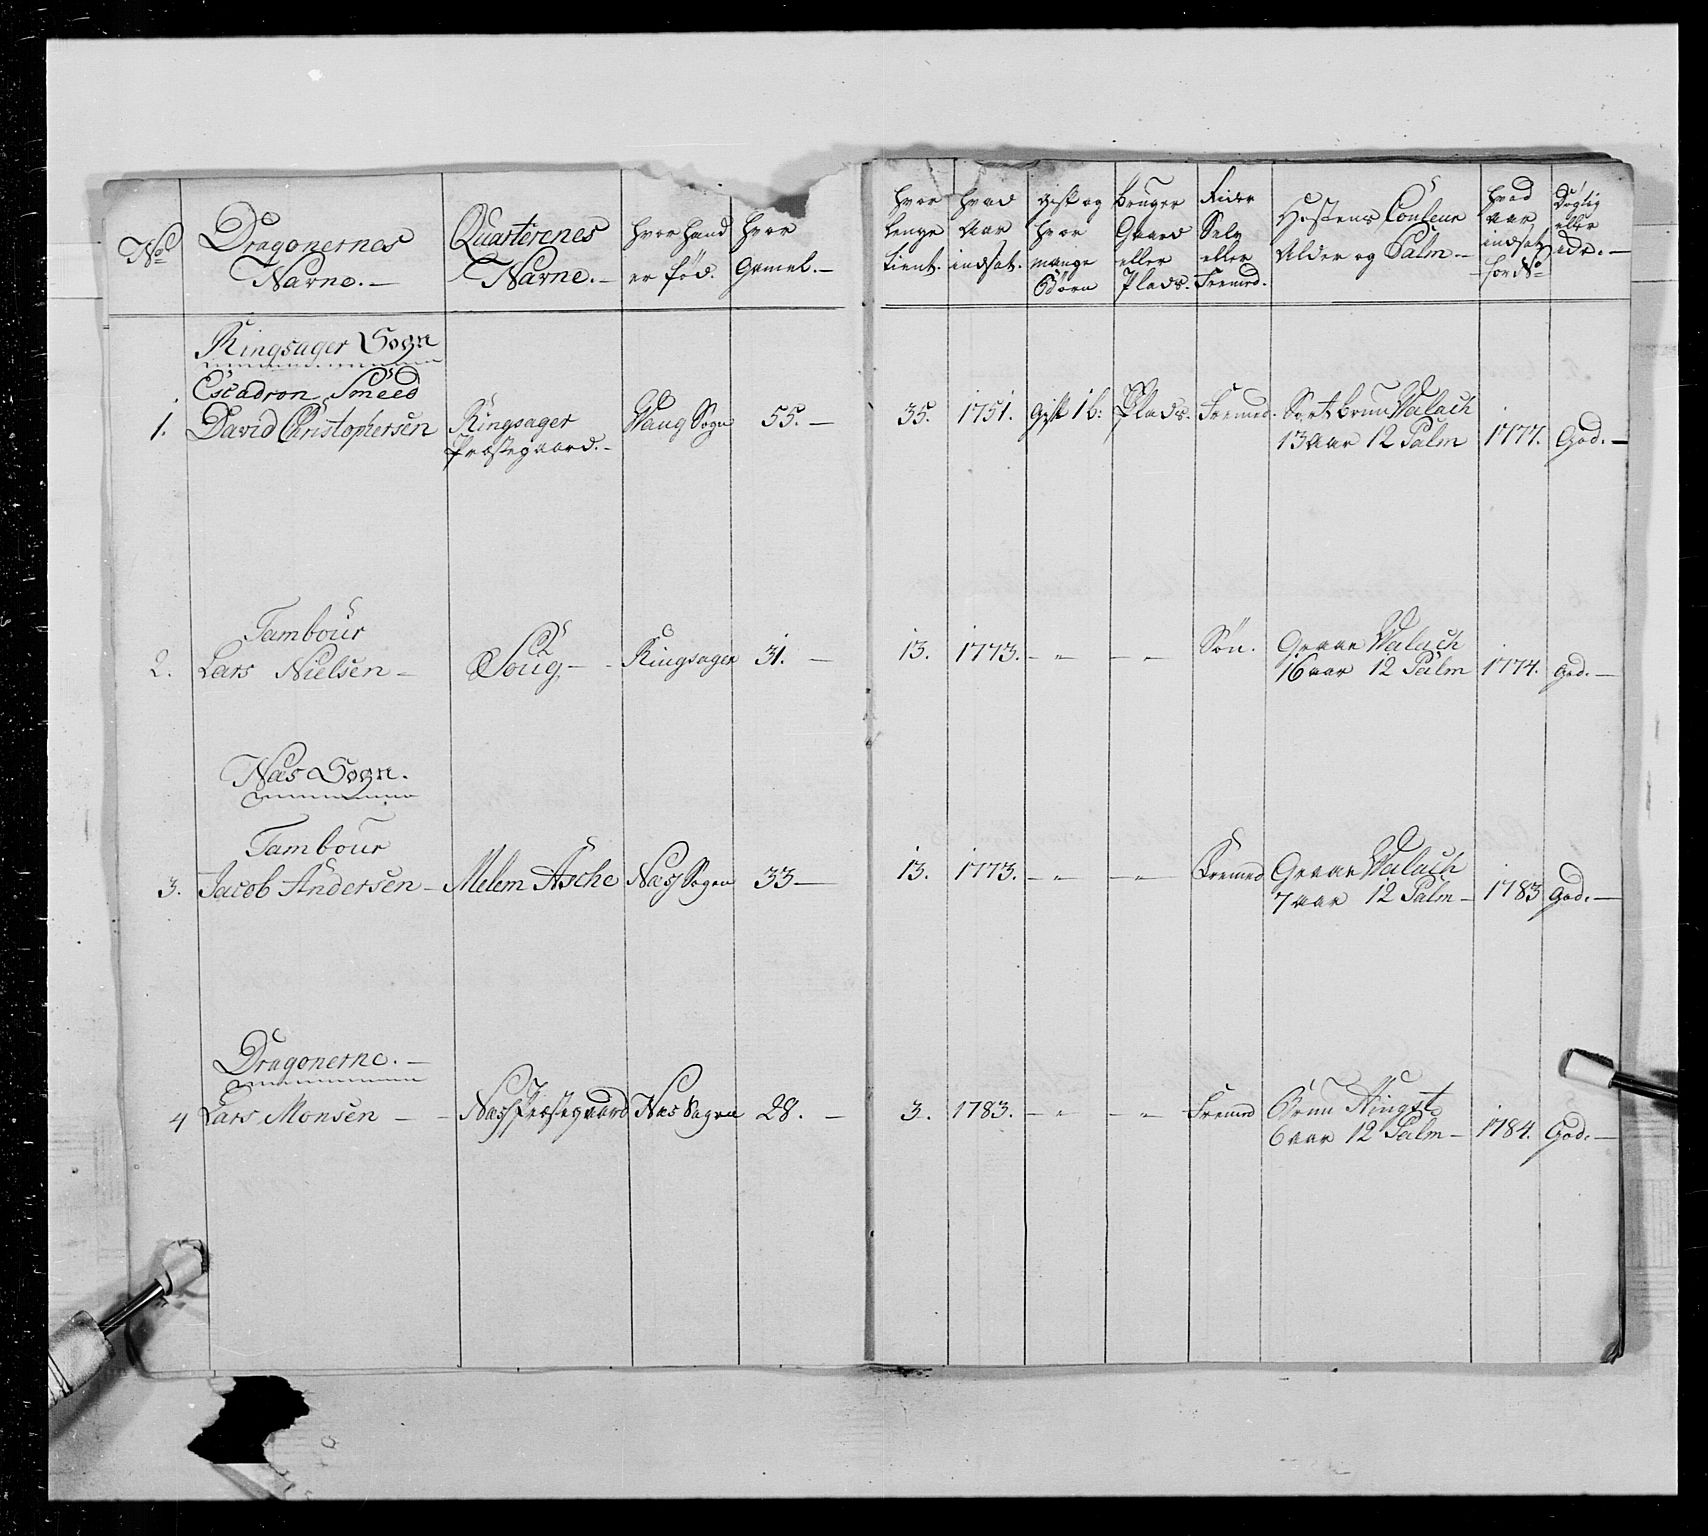 No
Dragonernes
Navne. —
Quarterenes
Navne. —
hvor hand
er fød.
hvor
Gamel. —
hvor
lenge
tient.
hvad
Aar
indsat.
gift og
hvor
mange
Børn
Bruger
Gaard
eller
Plads.
Rider
Selv
eller
Fremed.
Hestens Couleur
Alder og Palm. —
hvad
Aar
indsat
for No
Dygtig
eller
eide. —
Ringsager Sogn
Escadron Smeed
1. David Christophersen
Ringsager
Præstegaard. —
Wang Sogn
55. —
35. 1751. Gift 1 b: Plads. Fremed.
Sort brun Walach
13 aar 12 Palm
1777. God. —
Tambour
2. Lars Nielsen —
Ringsager 31. —
13. 1773. — „ — „ — Søn.
Graae Walach
16 aar 12 Palm
1774. God. —
Næs Sogn.
Tambour
3. Jacob Andersen — Melem Asche Næs Sogen 33 —
13. 1773. — „ — „ — Fremed
Graae Walach
7 aar 12 Palm —
1783 God. —
Dragonerne. —
4 Lars Monsen — Næs Præstegaard Næs Sogen 28. —
3. 1783. — „ — „ — Fremed
Brun Hingst
6 aar 12 Palm —
1784. God. —